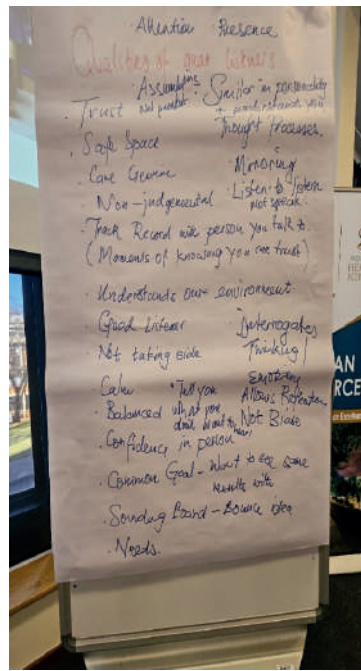 · Attention · Presence
Qualities of great listeners
· Trust
· Assumptions
Not present
· Similar in personality
Thought Processes.
· Safe Space
· Care Genuine
· Mirroring
· Non-judgemental
· Listen to listen
not speak.
· Track Record with person you talk to.
(Moments of knowing you can trust)
· Understands our environment
· Good Listener
· Interrogates
Thinking /
· Not taking side
Emotions
· Calm
· Tell you
what you
don't want to
hear
Allows Reflection
· Balanced
· Not Biase
· Confidence in person
· Common Goal - Want to see same
results with
· Sounding Board - Bounce idea
· Needs.
AN
RCE